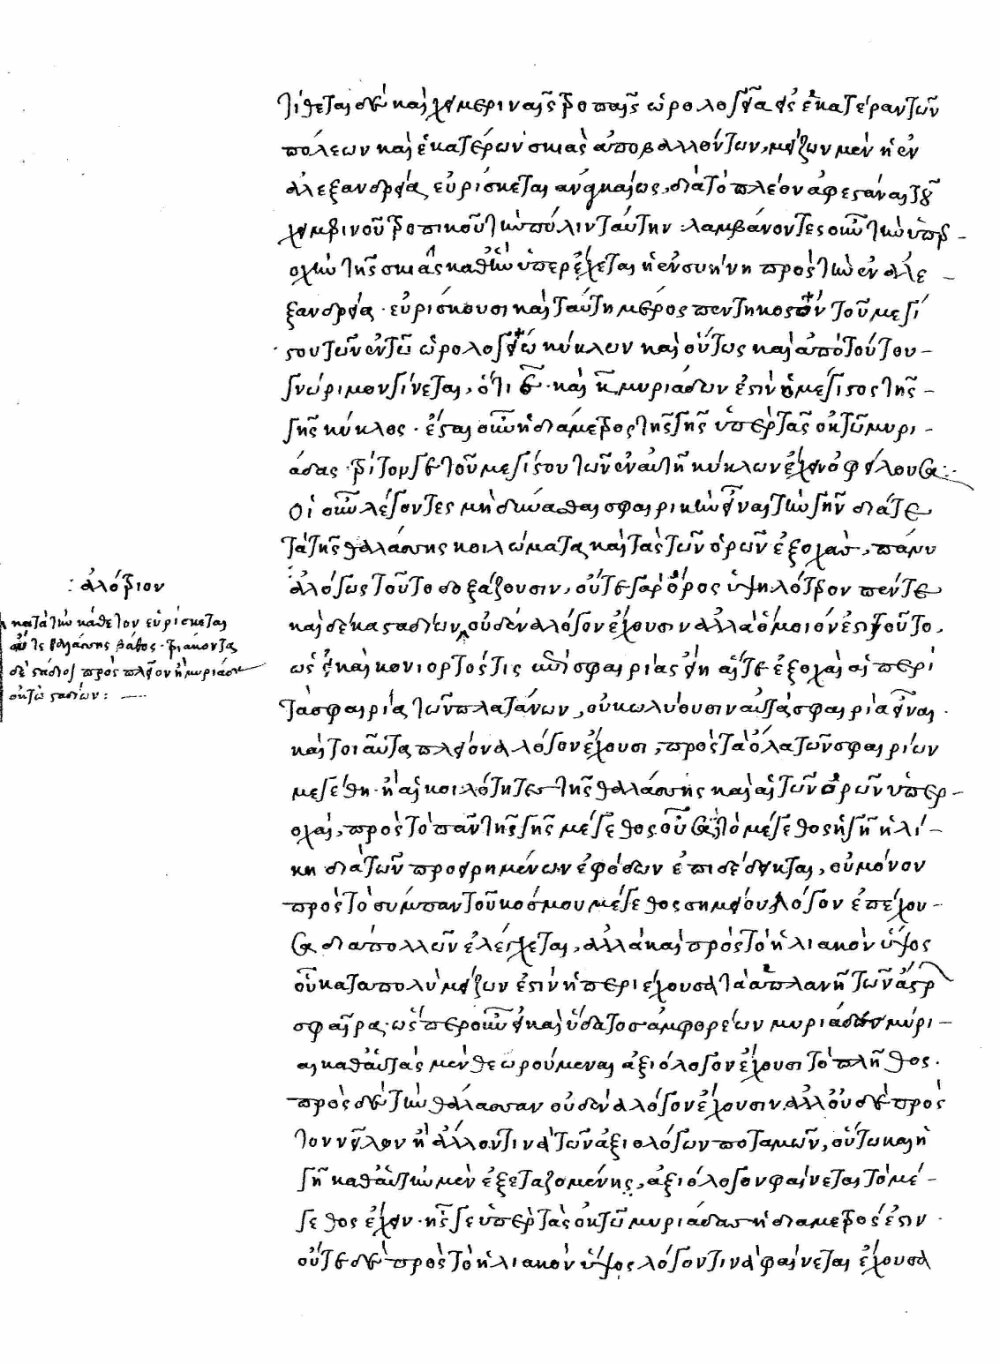 τίθεται οὖν καὶ χειμεριναῖς τροπαῖς ὡρολογεῖα εἰς ἑκατέραν τῶν
πόλεων καὶ ἑκατέρων σκιὰς ἀποβαλλόντων, μείζων μὲν ἡ ἐν
ἀλεξανδρείᾳ εὑρίσκεται ἀναγκαίως, διὰ τὸ πλέον ἀφεστάναι τοῦ
χειμερινοῦ τροπικοῦ τὴν πόλιν ταύτην· λαμβάνοντες οὖν τὴν ὑπερ-
οχὴν τῆς σκιᾶς καθ' ἣν ὑπερέχεται ἡ ἐν συήνῃ πρὸς τὴν ἐν ἀλε-
ξανδρείᾳ· εὑρίσκουσι καὶ ταύτη μέρος πεντηκοστὸν τοῦ μεγί
στου τῶν ἐν τῶ ὡρολογείω κύκλων καὶ οὕτως καὶ ἀπὸ τούτου-
γνώριμον γίνεται, ὅτι ε καὶ κ μυριάδων ἐστὶν ὁ μέγιστος τῆς-
γῆς κύκλος· ἔσται οὖν ἡ διάμετρος τῆς γῆς ὑπὲρ τὰς ὀκτὼ μυρι-
άδας· τρίτον γε τοῦ μεγίστου τῶν ἐν αὐτῇ κύκλων ἔχειν ὀφείλουσα:-
Οἱ οὖν λέγοντες μὴ δύνασθαι σφαιρικὴν εἶναι τὴν γῆν διά τε
τὰ τῆς θαλάσσης κοιλώματα καὶ τὰς τῶν ὀρῶν ἐξοχάς, πάνυ
ἀλόγως τοῦτο δοξάζουσιν, οὔτε γὰρ ὄρος ὑψηλότερον πέντε
καὶ δέκα σταδίων, οὐδένα λόγον ἔχουσιν ἀλλὰ ὅμοιόν ἐστι τοῦτο,
ὡς εἰ καὶ κονιορτός τις ἐπὶ σφαιρίας εἴη αἵ τε ἐξοχαὶ αἱ περὶ
τὰ σφαιρία τῶν πλατάνων, οὐκωλύουσιν αὐτὰ σφαιρία εἶναι·
καίτοι αὗται πλείονα λόγον ἔχουσι, πρὸς τὰ ὅλα τῶν σφαιρίων
μεγέθη· ἢ αἱ κοιλότητες τῆς θαλάσσης καὶ αἱ τῶν ὀρῶν ὑπερ-
οχαί, πρὸς τὸ πᾶν τῆς γῆς μέγεθος. οὖσα τὸ μέγεθος ἡ γῆ ἡλί-
κη διὰ τῶν προειρημένων ἐφόδων ἐπιδέδεικται, οὐ μόνον
πρὸς τὸ σύμπαν τοῦ κόσμου μέγεθος σημείου λόγον ἐπέχου-
σα διὰ πολλῶν ἐλέγχεται, ἀλλὰ καὶ πρὸς τὸ ἡλιακὸν ὕψος
οὗ κατὰ πολὺ μείζων ἐστὶν ἡ περιέχουσα τὰ ἀπλανῆ τῶν ἄστρ
σφαῖρα· ὥσπερ οὖν εἰ καὶ ὕδατος ἀμφορέων μυριάδων μύρι-
αι καθ' αὑτὰς μὲν θεωρούμεναι ἀξιόλογον ἔχουσι τὸ πλῆθος·
πρὸς δὲ τὴν θάλασσαν οὐδένα λόγον ἔχουσιν, ἀλλ' οὐδὲ πρὸς
τὸν νεῖλον ἢ ἄλλον τινὰ τῶν ἀξιολόγων ποταμῶν, οὕτω καὶ ἡ
γῆ καθ' αὑτὴν μὲν ἐξεταζομένης, ἀξιόλογον φαίνεται τὸ μέ-
γεθος ἔχειν· ἧς γε ὑπὲρ τὰς ὀκτὼ μυριάδας ἡ διάμετρός ἐστιν·
οὔτε δὲ πρὸς τὸ ἡλιακὸν ὕψος λόγον τινὰ φαίνεται ἔχουσα
: ἀλότριον
κατὰ τὴν κάθετον εὑρίσκεται
οὔτε θαλάσσης βάθος· τριάκοντα
δὲ στάδιοι πρὸς πλεῖον ἢ μυριάδας
ὀκτὼ σταδίων: —